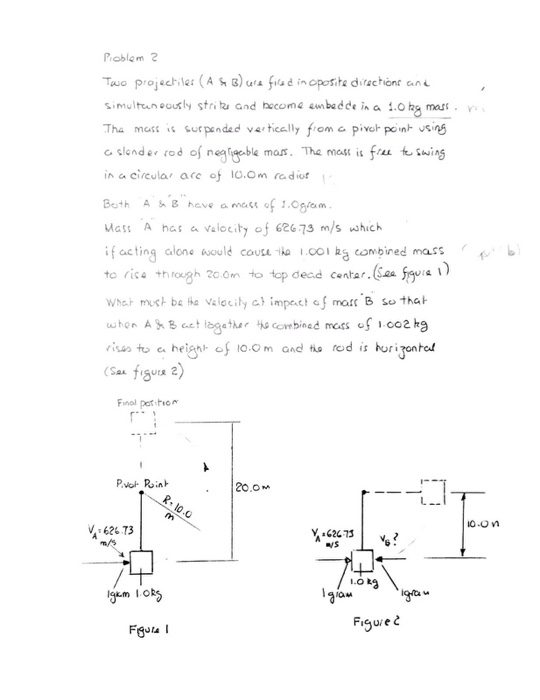 Problem 2
Two projectiles (A & B) are fired in oposite directions and
simultaneously strike and become embedde in a 1.0 kg mass.
The mass is suspended vertically from a pivot point using
a slender rod of negligable mass. The mass is free to swing
in a circular arc of 10.0m radius
Both "A" & "B" have a mass of 1.0gram.
Mass "A" has a velocity of 626.73 m/s which
if acting alone would cause the 1.001 kg combined mass
to rise through 20.0m to top dead center. (See figure 1)
What must be the velocity at impact of mass "B" so that
when A & B act together the combined mass of 1.002 kg
rises to a height of 10.0m and the rod is horizontal
(See figure 2)
Final position
Pivot Point
R=10.0
m
20.0m
VA=626.73
m/s
1gram 1.0kg
Figure 1
VA=626.73
m/s
VB?
10.0m
1.0kg
1gram
1gram
Figure 2